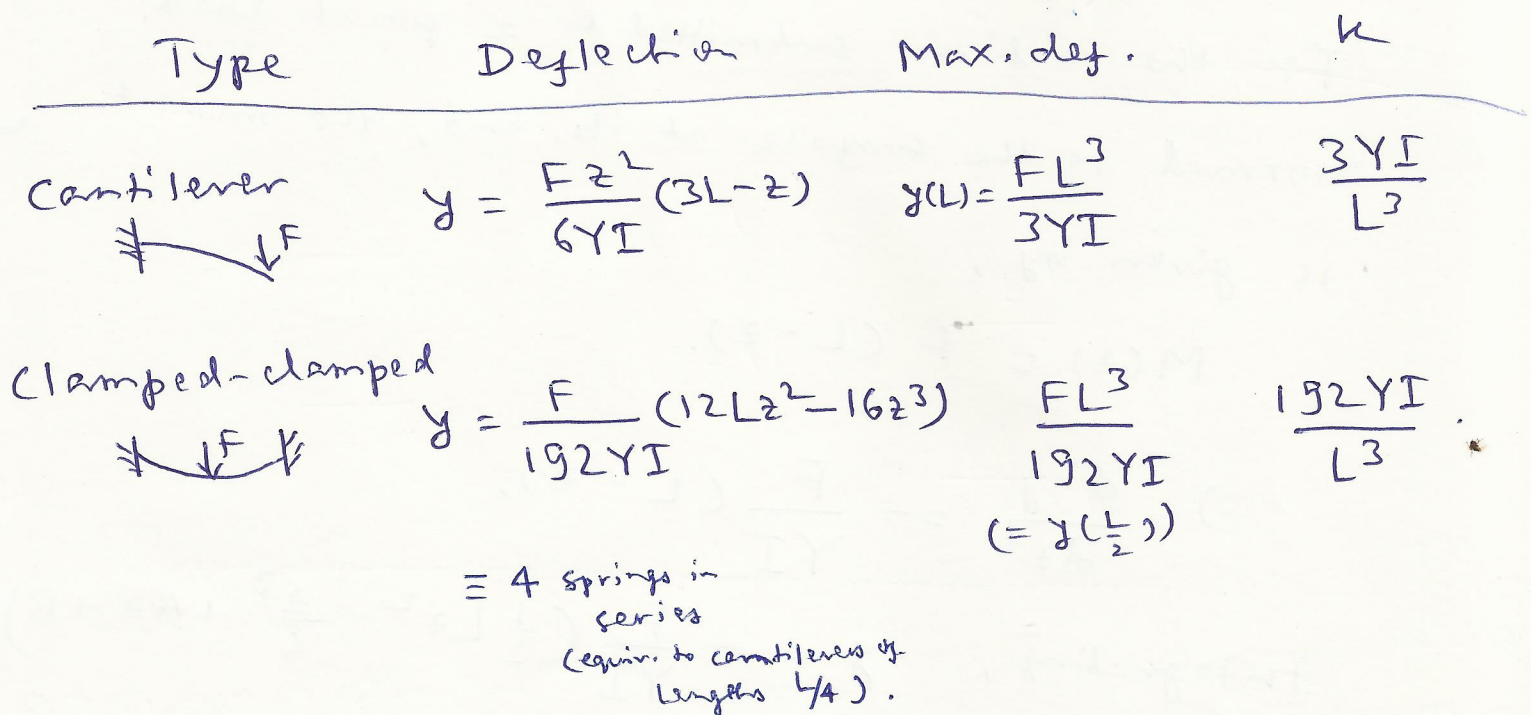 Type Deflection Max. def. k
Cantilever y = Fz²/6YI (3L-z) y(L) = FL³/3YI 3YI/L³
F
Clamped-clamped y = F/192YI (12Lz²-16z³) FL³/192YI 192YI/L³.
F
(= y(L/2))
≡ 4 springs in
series
(equiv. to cantilevers of
lengths L/4).